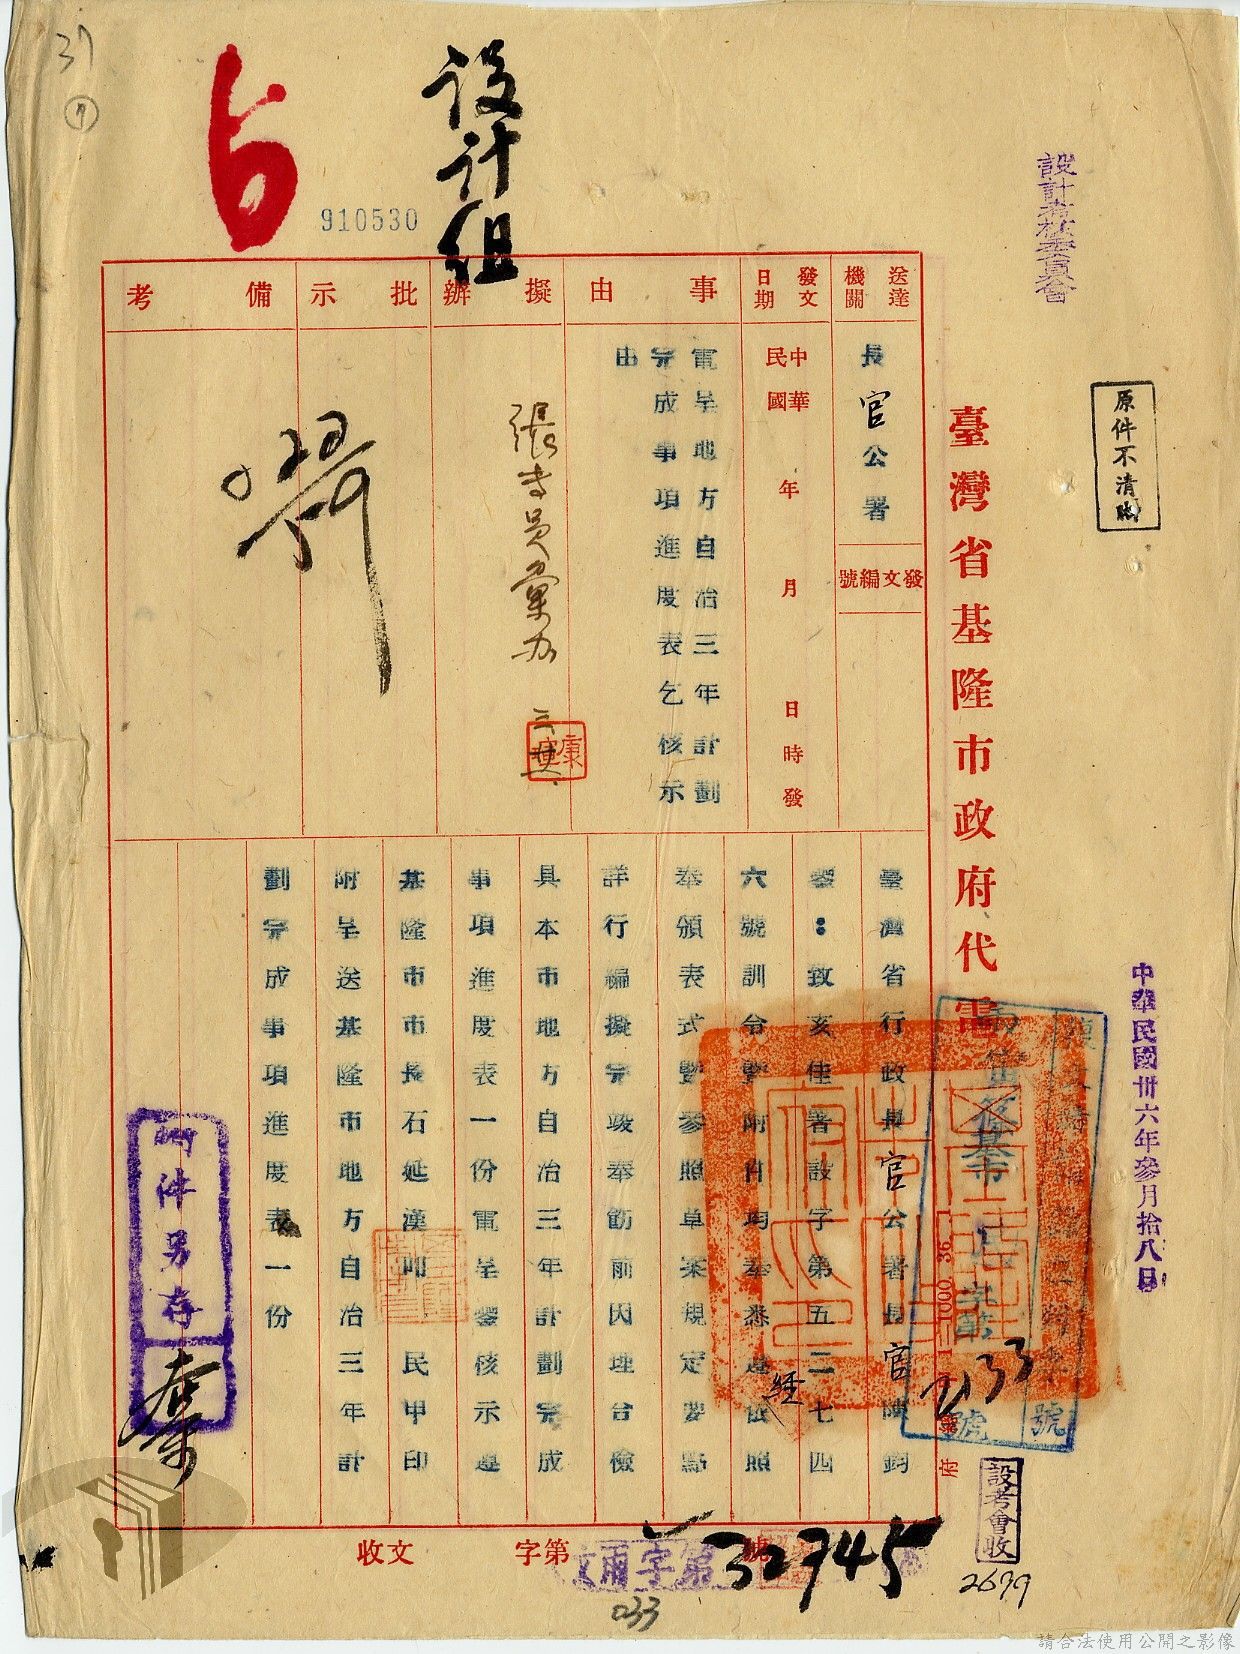 37
7
设计组
910530
設計考核委員會
原件不清晰
臺灣省基隆市政府代電
送達機關
長官公署
發文編號
發文日期
中華民國 年 月 日 時發
事由
電呈地方自治三年計劃
完成事項進度表乞核示
由
擬辦
張專員彙办
批示
備考
臺灣省行政長官公署長官陳鈞
鑒：致亥佳署設字第五二七四
六號訓令暨附件均奉悉遵經依照
奉頒表式暨參照單案規定要點
詳行編擬完竣奉飭前因理合檢
具本市地方自治三年計劃完成
事項進度表一份電呈鑒核示遵
基隆市市長石延漢叩 民甲印
附呈送基隆市地方自治三年計
劃完成事項進度表一份
附件另存
中華民國卅六年參月拾八日
字第
2133
號
號
1000 36
府
設考會收
2679
收文 字第 號
32745
033
請合法使用公開之影像